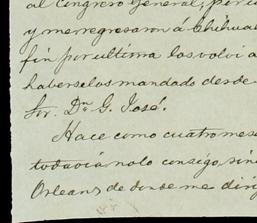 al Congreso General, por c
y me regresaron á Chihua
fin por ultima los volví a
haberselos mandado desde
Sor. Dn. G. José.
Hace como cuatro mese
todavía no lo consigo, sin
Orleans de donde me diri